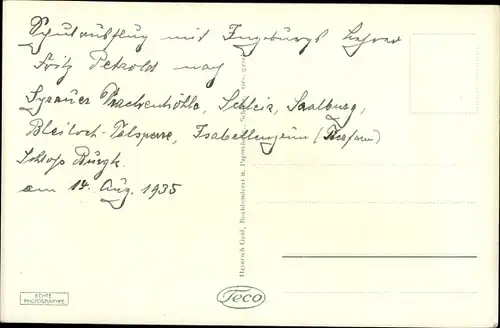 Schulausflug mit Ingeburgs Lehrer
Fritz Petzold nach
Syrauer Drachenhöhle, Schleiz, Saalburg,
Bleiloch-Talsperre, Isabellengrün
Schloss Burgk.
am 14. Aug. 1935
Heinrich Graf, Buchbinderei u. Papierhandl.
ECHTE
PHOTOGRAPHIE
Teco